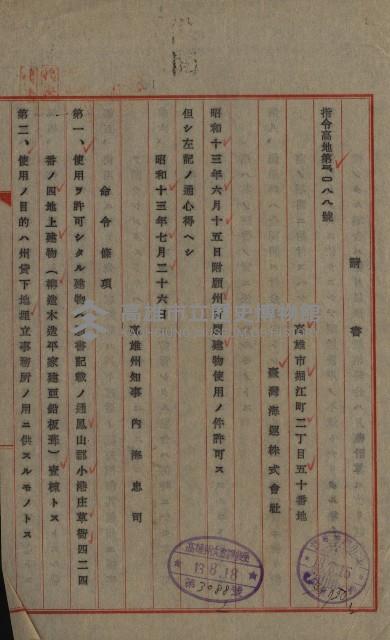 請書
指令高地第三〇八八號
高雄市堀江町二丁目五十番地
臺灣海運株式會社
昭和十三年六月十五日附願州有建物使用ノ件許可ス
但シ左記ノ通心得ヘシ
昭和十三年七月二十六
高雄州知事 內海忠司
命令條項
第一、使用ヲ許可シタル建物 書記載ノ通鳳山郡小港庄草衙四二四
番ノ四地上建物(木造平家建亜鉛板葺)壹棟トス
第二、使用ノ目的ハ州貸下地埋立事務所ノ用ニ供スルモノトス
高雄市立歷史博物館
13.8.18
第3088號